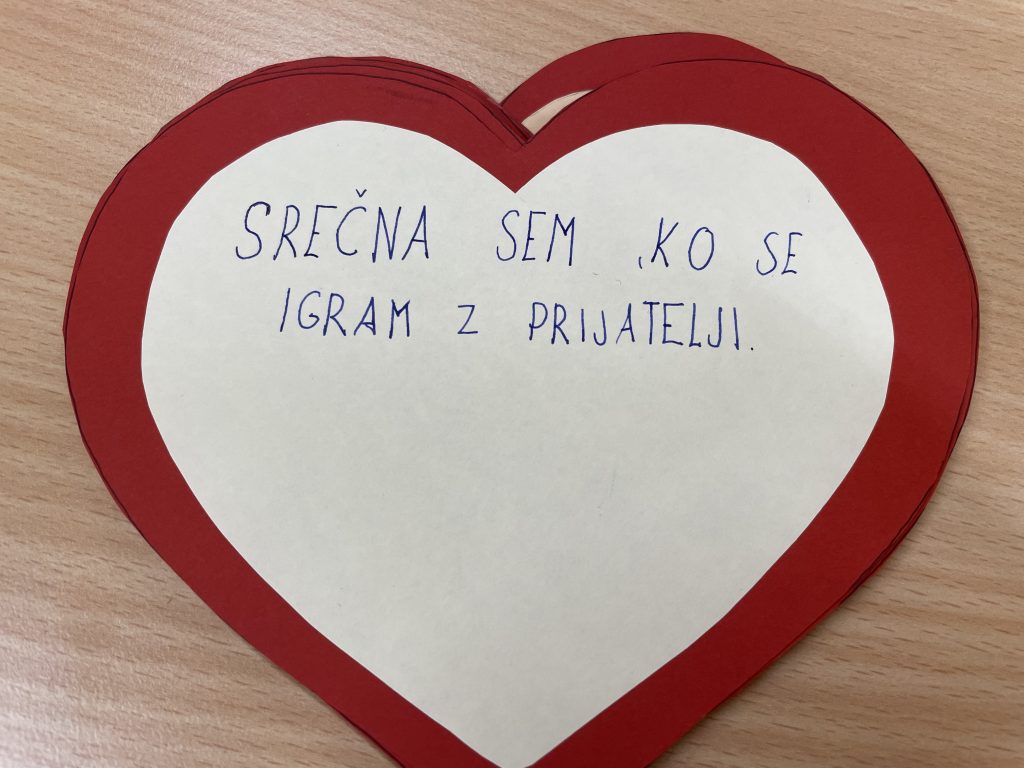 SREČNA SEM ,KO SE
IGRAM Z PRIJATELJI.